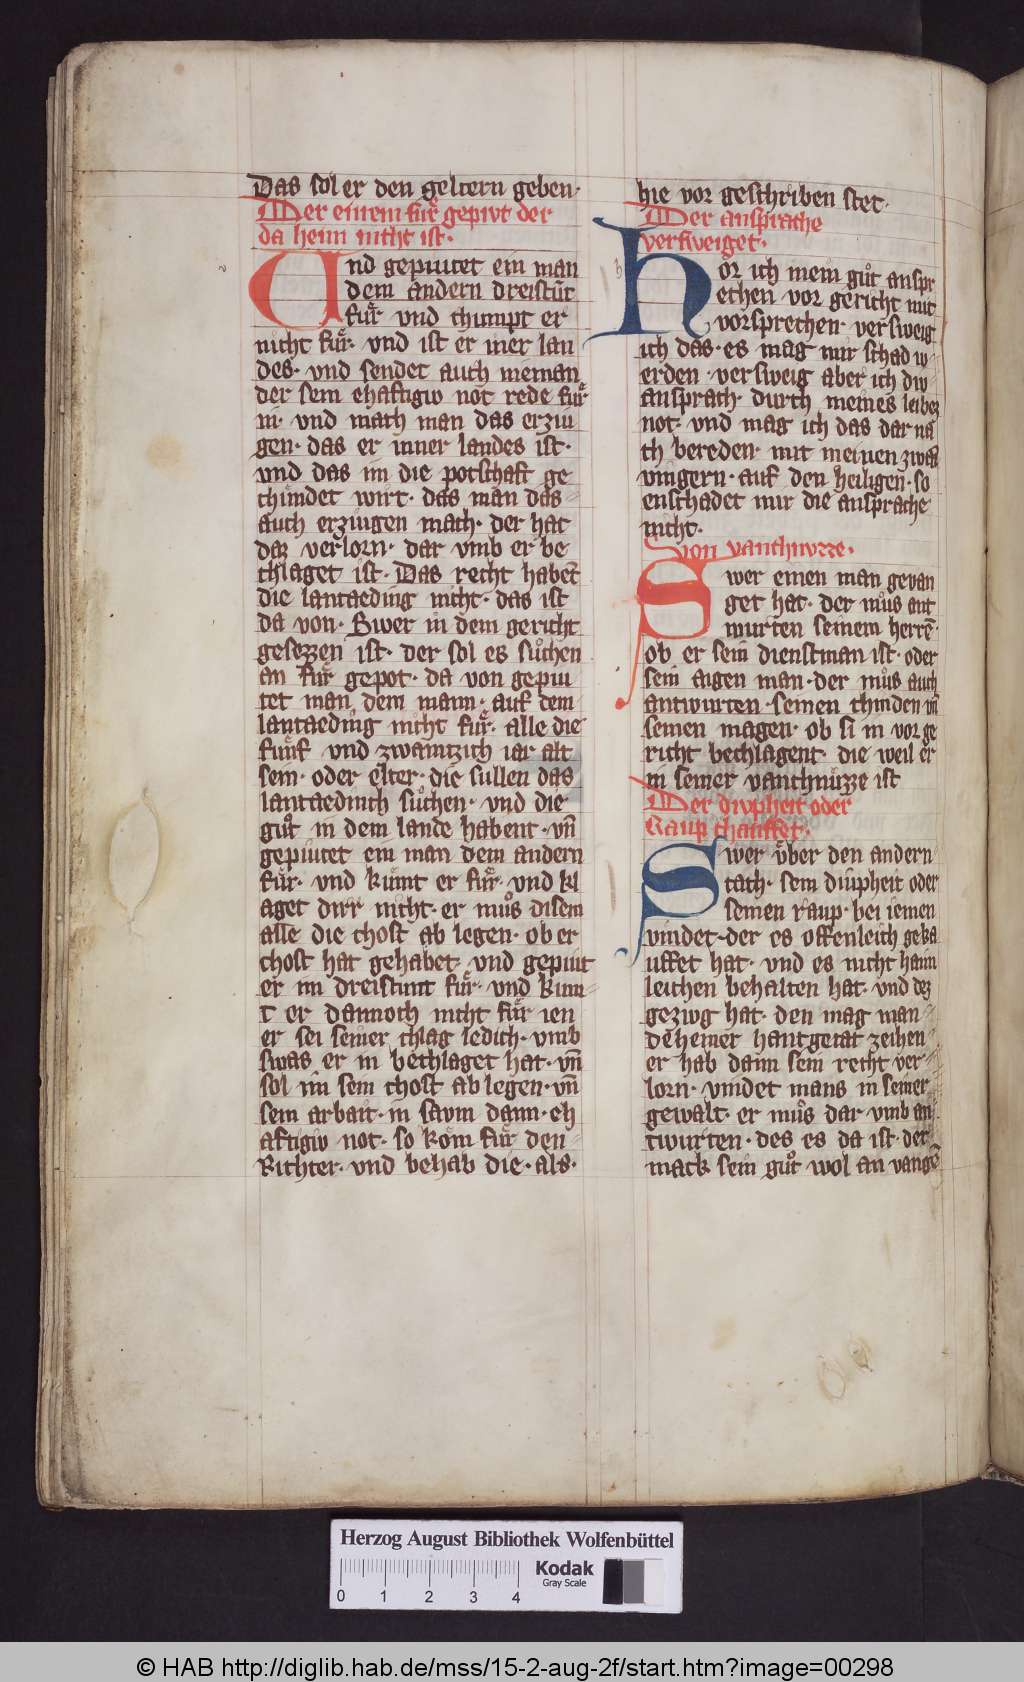 Das sol er den geltern geben·
Der einem fuͤr gepiut der
da heim nicht ist·
Und gepiutet ein man
dem andern dreistūt
fuͤr und chumpt er
nicht fuͤr· vnd ist er iner lan
des· vnd sendet auch nieman
der sein ehaftigiv not rede fuͤr
in· vnd mach man das erziu
gen· das er inner landes ist·
vnd das im die potschaft ge
chündet wirt· das man das
auch erziugen mach· der hat
daz verlorn· dar vmb er be
chlaget ist· Das recht habent
die lantaeding nicht· das ist
da von· Swer in dem gericht
gesezzen ist· der sol es suͦchen
an fuͤr gepot· da von gepiu
tet man dem mann· auf dem
lantaeding nicht fuͤr· alle die
fuͤnf vnd zwaintzich iar alt
sein· oder elter· die sullen das
lantaedinch suͦchen· vnd die
guͦt in dem lande habent· vn̄
gepiutet ein man dem andern
fuͤr· vnd kuͤmt er fuͤr· vnd kl
aget dirr nicht· er muͦs disem
alle die chost ab legen· ob er
chost hat gehabet· vnd gepiut
er im dreistunt fuͤr· vnd kum
t er dannoch nicht fuͤr ien
er sei seiner chlag ledich· vmb
swas er in bechlaget hat· vn̄
sol im sein chost ab legen· vn̄
sein arbait· in savm dann· eh
aftigiv not· so köm fuͤr den
Richter· vnd behab die· als·
hie vor geschriben stet·
Der ansprache
versweiget·
Hor ich mein guͦt anspr
echen vor gericht mit
vorsprechen· versweig
ich das· es mag mir schad w
erden· versweig aber ich div
ansprach· durch meines leibez
not· vnd mag ich das dar na
ch bereden· mit meinen zwain
vingern· auf den heiligen· so
enschadet mir die ansprache
nicht·
Von vanchnuzze·
Swer einen man gevan
get hat· der muͦs ant
wurten seinem herrē·
ob er sein dienstman ist· oder
sein aigen man· der muͦs auch
antwurten· seinen chinden vn̄
seinen magen· ob si in vor ge
richt bechlagent· die weil er
in seiner vanchnüzze ist
Der divpheit oder
Raup chauffet·
Swer über den andern
tach· sein diupheit oder
seinen raup· bei iemen
vindet· der es offenleich geka
uffet hat· vnd es nicht haim
leichen behalten hat· vnd dez
gezivg hat· den mag man
dēheiner hantgetat zeihen
er hab dann sein recht ver
lorn· vindet mans in seiner
gewalt· er muͦs dar vmb an
twurten· des es da ist· der
mack sein guͦt wol an vangē
Herzog August Bibliothek Wolfenbüttel
0 1 2 3 4
Kodak
Gray Scale
© HAB http://diglib.hab.de/mss/15-2-aug-2f/start.htm?image=00298